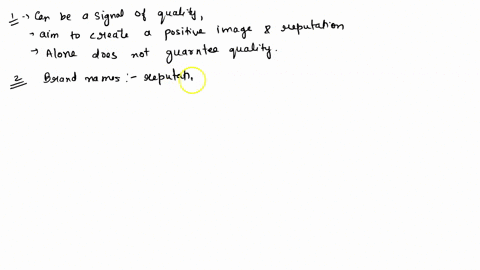 1 → Can be a signal of quality,
→ aim to create a positive image & reputation
→ Alone does not guarntee quality.
2 Brand names :- reputati